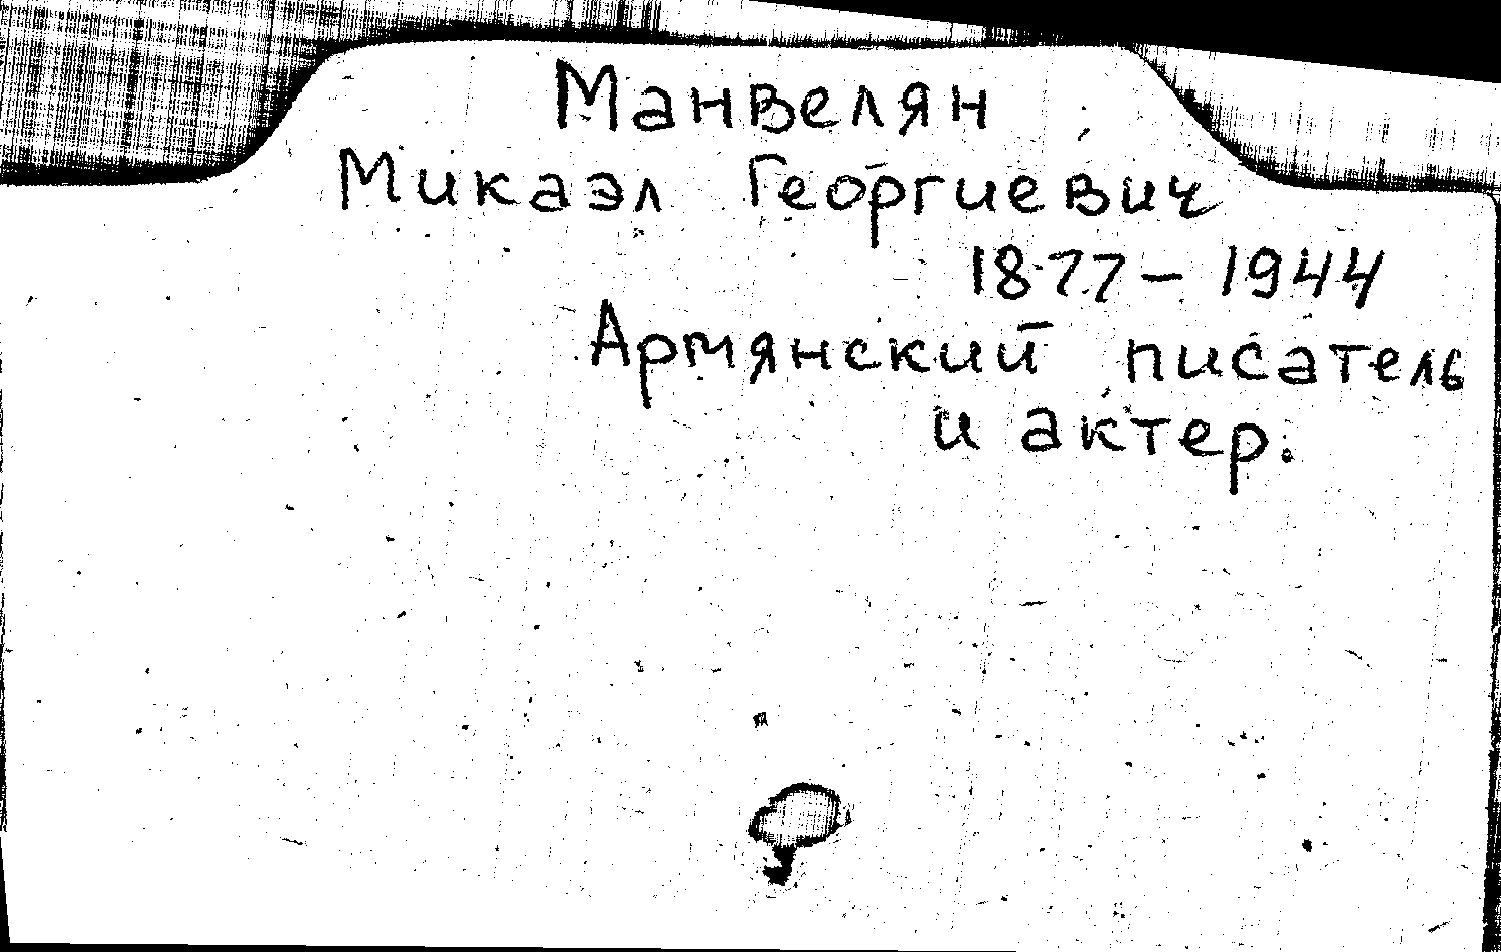 Манвелян
Микаэл Георгиевич
1877 – 1944
Армянский писатель
и актер.